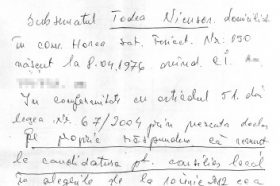 Subsemnatul Todea Nicușor domiciliat
în com. Horea sat. Nr. 890
născut la 8.04.1976 având C.I.
În conformitate cu articolul 51. din
legea nr. 67/2004 prin prezenta declar
Pe proprie răspundere că renunț
la candidatura pt. consiliu local
la alegerile de la 10 iunie 2012 ca a